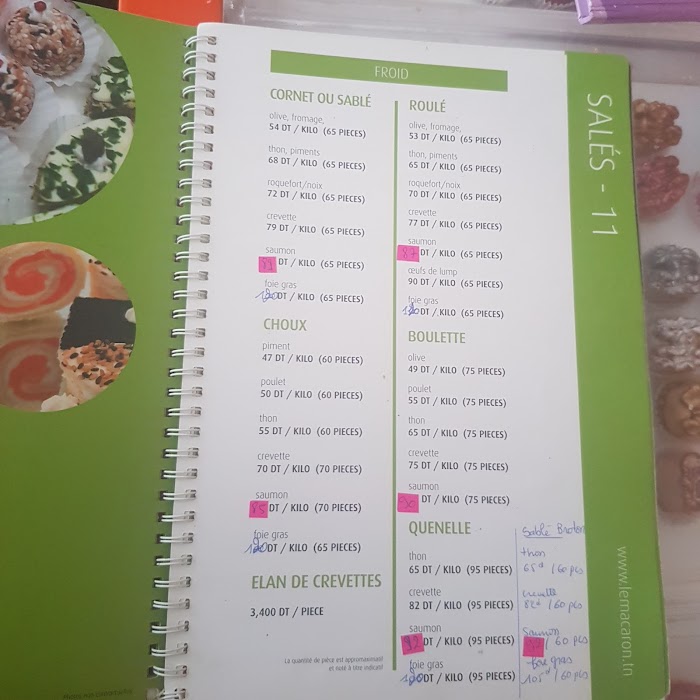 FROID
SALÉS - 11
CORNET OU SABLÉ
olive, fromage,
54 DT / KILO (65 PIECES)
thon, piments
68 DT / KILO (65 PIECES)
roquefort/noix
72 DT / KILO (65 PIECES)
crevette
79 DT / KILO (65 PIECES)
saumon
DT / KILO (65 PIECES)
foie gras
120 DT / KILO (65 PIECES)
CHOUX
piment
47 DT / KILO (60 PIECES)
poulet
50 DT / KILO (60 PIECES)
thon
55 DT / KILO (60 PIECES)
crevette
70 DT / KILO (70 PIECES)
saumon
85 DT / KILO (70 PIECES)
foie gras
120 DT / KILO (65 PIECES)
ELAN DE CREVETTES
3,400 DT / PIECE
La quantité de pièce est approximatif
et noté à titre indicatif
ROULÉ
olive, fromage,
53 DT / KILO (65 PIECES)
thon, piments
65 DT / KILO (65 PIECES)
roquefort/noix
70 DT / KILO (65 PIECES)
crevette
77 DT / KILO (65 PIECES)
saumon
87 DT / KILO (65 PIECES)
œufs de lump
90 DT / KILO (65 PIECES)
foie gras
120 DT / KILO (65 PIECES)
BOULETTE
olive
49 DT / KILO (75 PIECES)
poulet
55 DT / KILO (75 PIECES)
thon
65 DT / KILO (75 PIECES)
crevette
75 DT / KILO (75 PIECES)
saumon
90 DT / KILO (75 PIECES)
QUENELLE
thon
65 DT / KILO (95 PIECES)
crevette
82 DT / KILO (95 PIECES)
saumon
92 DT / KILO (95 PIECES)
foie gras
120 DT / KILO (95 PIECES)
Sablé Breton
thon
65d / 60 pcs
crevette
82d / 60 pcs
Saumon
92 / 60 pcs
foie gras
105d / 60 pcs
www.lemacaron.tn